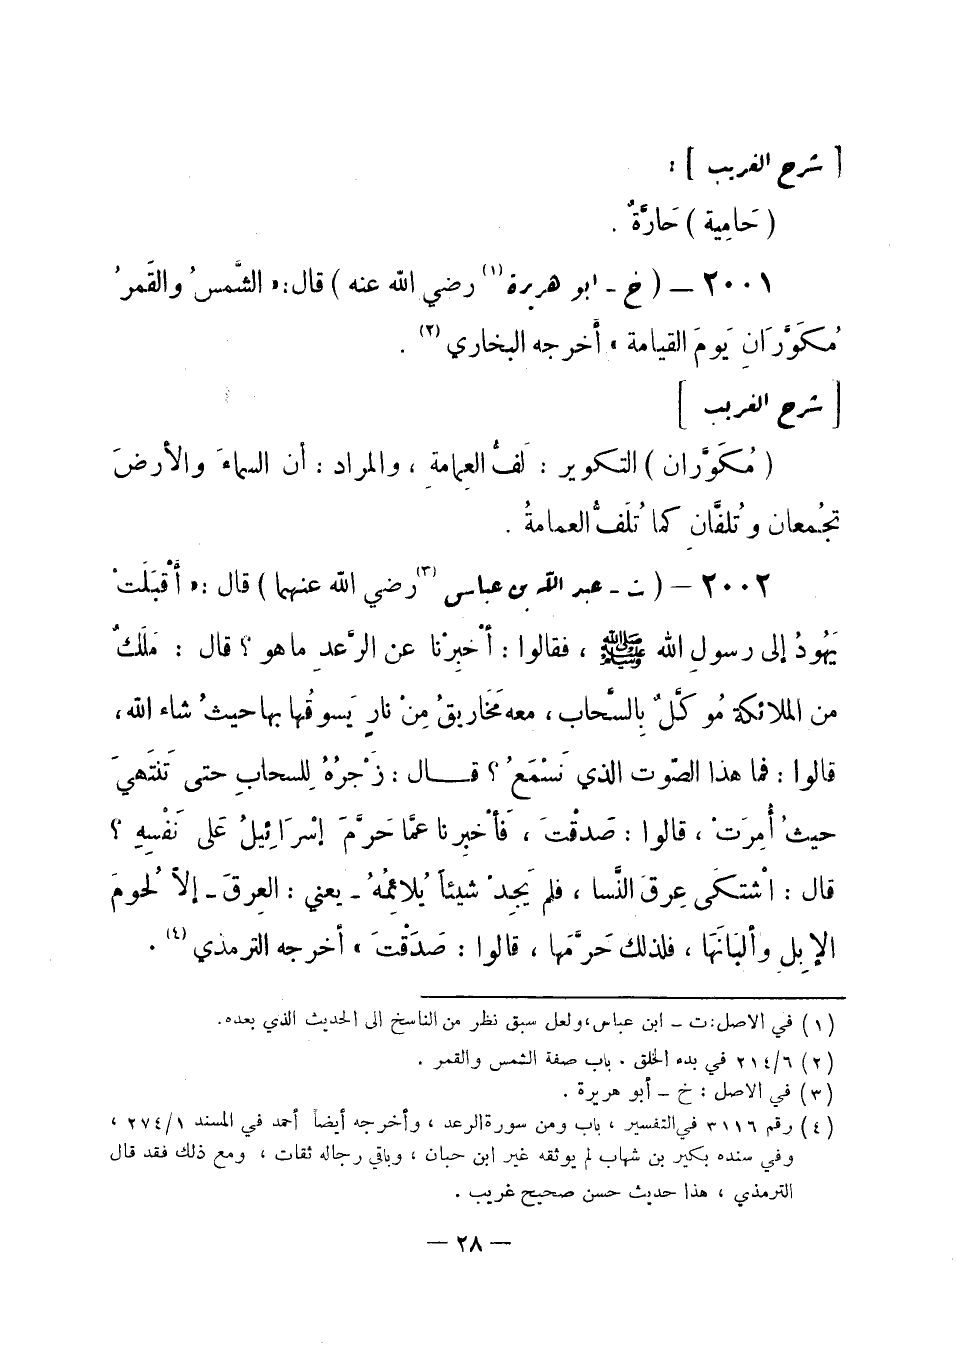 [ شرح الغريب ] :
( حَامِية ) حَارَّةٌ .
٢٠٠١ — ( خ - ابو هريرة (١) رضي الله عنه ) قال: « الشَّمسُ والقَمرُ
مُكَوَّرَانِ يَومَ القيامة » أخرجه البخاري (٢) .
[ شرح الغريب ]
( مُكَوَّران ) التكوير : لَفُّ العِمامةِ ، والمراد : أن السماءَ والأرضَ
تجُمعان وتُلفَّانِ كما تُلَفُّ العمامةُ .
٢٠٠٢ — ( ت - عبد الله بن عباس (٣) رضي الله عنهما ) قال : « أَقْبَلَتْ
يَهُودُ إلى رسولِ الله ﷺ ، فقالوا : أخْبِرْنا عن الرَّعدِ ما هو ؟ قال : مَلَكٌ
من الملائكة مُوكَّلٌ بِالسَّحاب، معه مَخَاريقُ مِنْ نارٍ يَسوقُها بها حيثُ شاء الله،
قالوا : فما هذا الصّوت الذي نَسْمَعُ ؟ قــال : زَجْرُهُ لِلسحابِ حتى تَنتَهيَ
حيثُ أُمِرَتْ ، قالوا : صَدقْتَ ، فَأَخْبِرنا عمَّا حَرَّمَ إسْرَائِيلُ عَلى نَفْسِهِ ؟
قال : اشْتكَى عِرقَ النَّسا ، فلم يَجِدْ شيئاً يُلائِمُهُ - يعني : العِرقَ - إلاّ لُحومَ
الإبِلِ وألبَانَهَا ، فلذلك حَرَّمَها ، قالوا : صَدَقْتَ » أخرجه الترمذي (٤) .
(١) في الاصل: ت - ابن عباس، ولعل سبق نظر من الناسخ الى الحديث الذي بعده.
(٢) ٢١٤/٦ في بدء الخلق . باب صفة الشمس والقمر .
(٣) في الاصل : خ - أبو هريرة .
(٤) رقم ٣١١٦ في التفسير ، باب ومن سورة الرعد ، وأخرجه أيضاً أحمد في المسند ٢٧٤/١ ،
وفي سنده بكير بن شهاب لم يوثقه غير ابن حبان ، وباقي رجاله ثقات ، ومع ذلك فقد قال
الترمذي ، هذا حديث حسن صحيح غريب .
— ٢٨ —